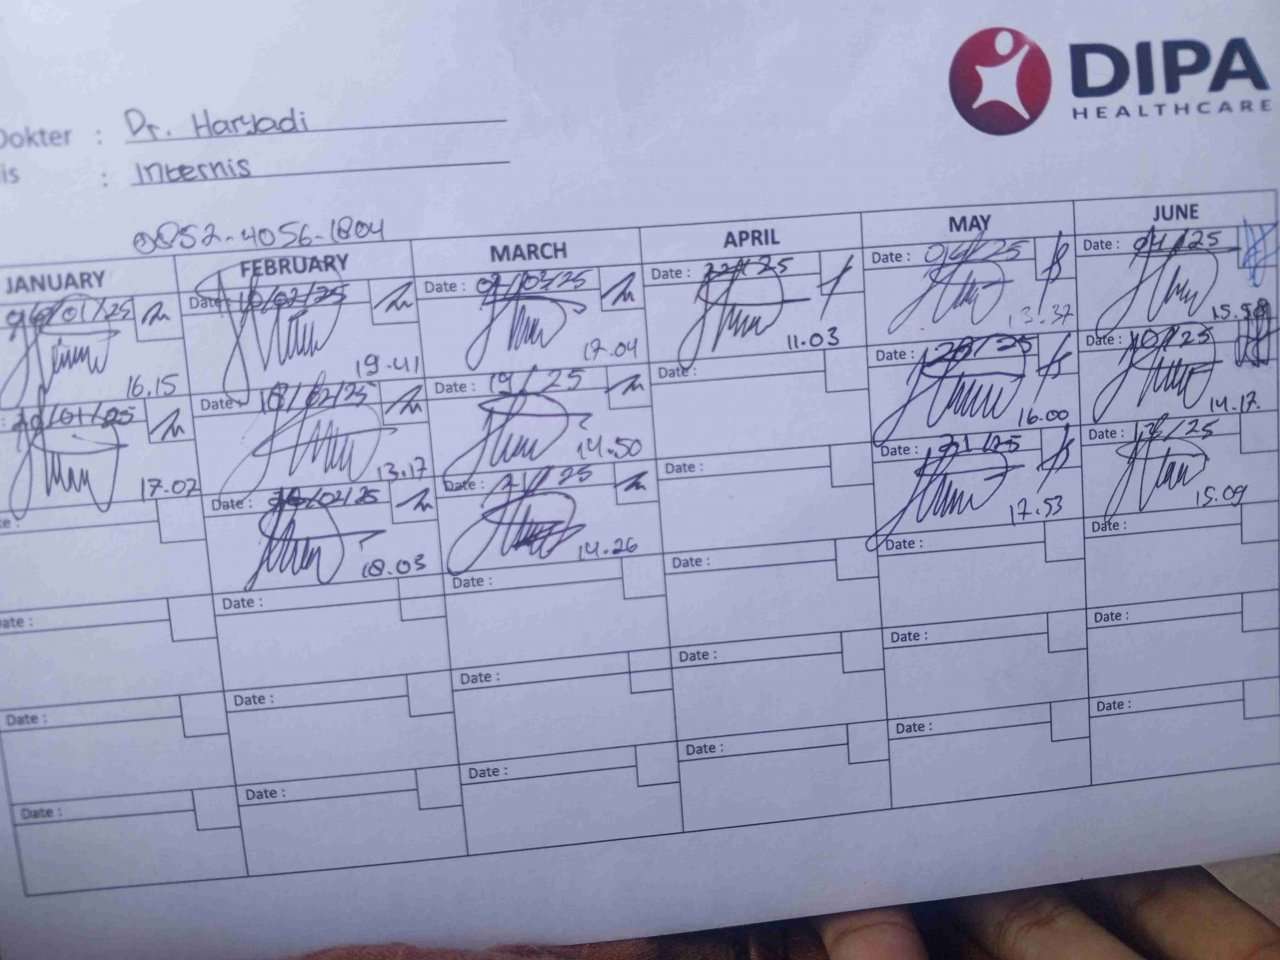 DIPA
HEALTHCARE
Dokter : Dr. Haryadi
is : Internis
0852-4056-1804
JANUARY FEBRUARY MARCH APRIL MAY JUNE
/01/25 Date: 10/02/25 Date: /03/25 Date: 22/ /25 Date: /25 Date: 04/ /25
16.15 19.41 17.04 11.03 13.37 15.58
/01/25 Date: 18/02/25 Date: 19/ /25 Date: Date: /25 Date: 10/ /25
17.02 13.17 14.50 16.00 14.17
Date: /02/25 Date: /25 Date: Date: /25 Date: /25
18.03 14.26 17.53 15.09
ate: Date: Date: Date: Date: Date:
Date: Date: Date: Date: Date: Date:
Date: Date: Date: Date: Date: Date: